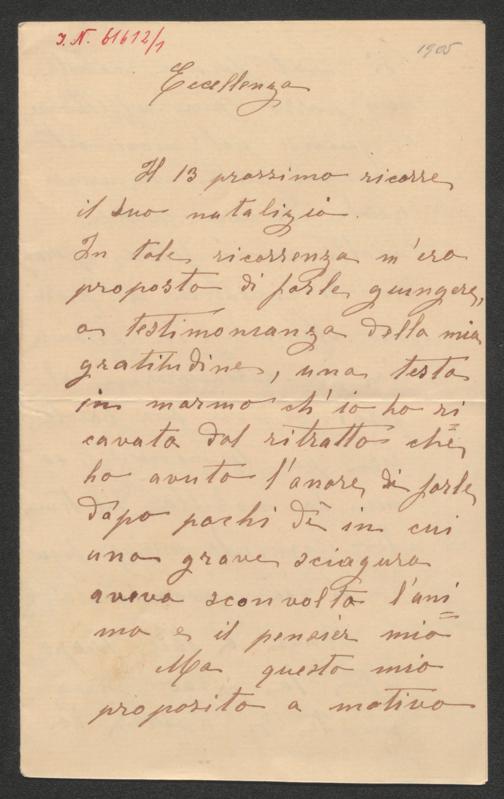 J. N. 61612/1
1905
Eccellenza
Il 13 prossimo ricorre
il suo natalizio.
In tale ricorrenza m'ero
proposto di farle giungere,
a testimonianza della mia
gratitudine, una testa
in marmo ch'io ho ri=
cavata dal ritratto che
ho avuto l'onore di farle
dopo pochi dì in cui
una grave sciagura
aveva sconvolto l'ani=
mo e il pensier mio
Ma questo mio
proposito a motivo